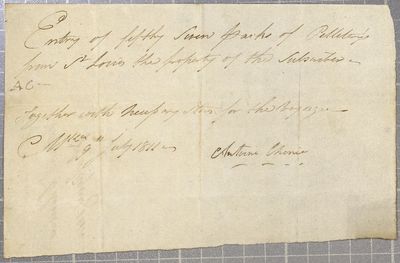 Entry of fifty Seven Packs of Pelletrys
from St Louis the property of the Subscriber
AC
Together with Necessary Stores for the Voyage
9th July 1811
Antoine Chenie